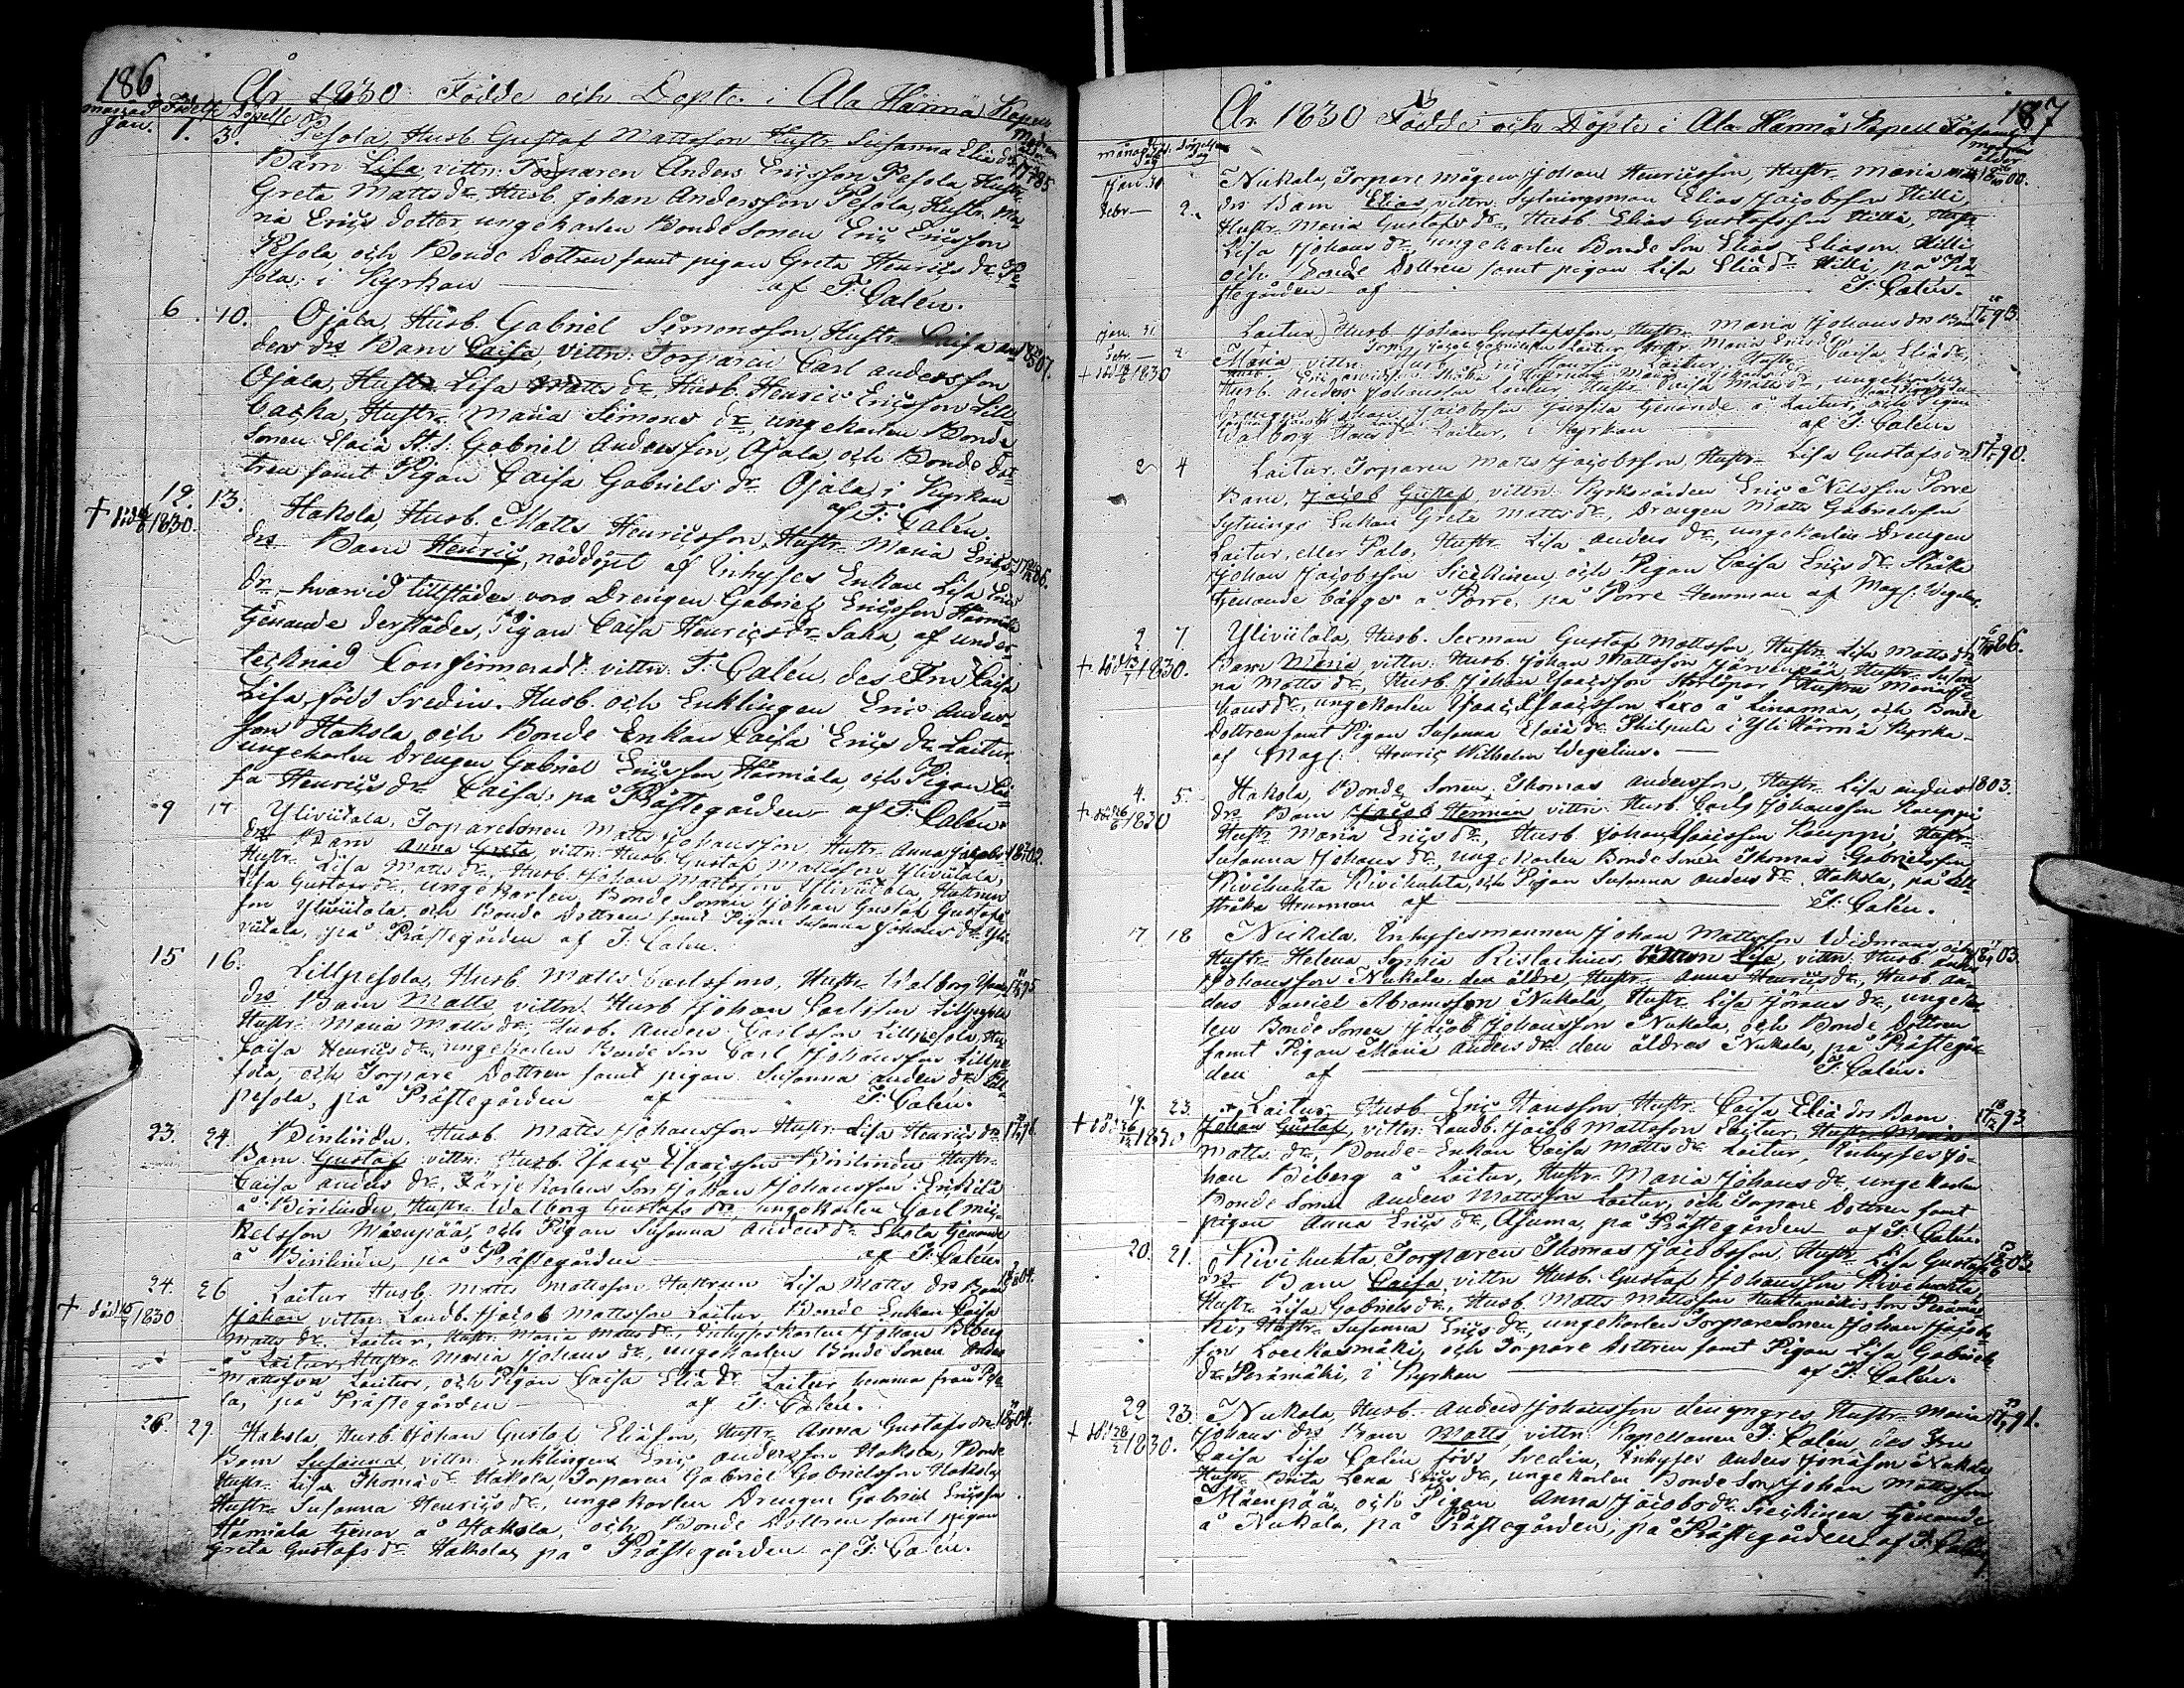 186
År 1830 Födde och Döpte i Ala Härmä Capell
Månad Födelse Döpelse
Jan. 1. 3. Pesola, Husb. Gustaf Mattsson Hustr. Susanna Eliæ drs
Barn Lisa vittn: Torparen Anders Ericsson Pesola, Hustr.
Greta Matts dr. Husb. Johan Andersson Pesola, Hustr.
na Erics dotter, ungekarlen Bonde Sonen Eric Ericsson
Pesola, och Bonde Dottren samt pigan Greta Henrics dr. Pe
sola; i Kyrkan af F: Calén.
6. 10. Ojala, Husb. Gabriel Simonsson, Hustr. Caisa An
ders drs Barn Caisa, vittn: Torparen Carl Andersson
Ojala, Hustr. Lisa Matts dr. Husb. Henric Ericsson Lill
backa, Hustr. Maria Simons dr, ungekarlen Bonde
Sonen Gabriel Andersson, Ojala, och Bonde Dot
tren samt Pigan Caisa Gabriels dr. Ojala, i Kyrkan
af F: Calén.
12. 13. Hakola, Husb. Matts Henricsson, Hustr. Maria Erics
+ död 1830.
drs Barn Henric, nöddöpt af Inhyses Enkan Lisa Erics
dr, hvarvid tillstädes voro Drengen Gabriel Ericsson Härmälä
tjenande derstädes, Pigan Caisa Henrics dr Saha, af under
tecknad Confirmeradt. vittn: F: Calén, des Fru Caisa
Lisa, född Svedin. Husb. och Enklingen Eric Anders
son Hakola, och Bonde Enkan Caisa Erics dr. Laitur.
ungekarlen Drengen Gabriel Ericsson, Härmälä, och Pigan
sa Henrics dr. på Prästegården af F: Calén.
9 17 Yliviitala, Torparesonen Matts Johansson, Hustr. Anna Jacobs
drs Barn Anna Greta, vittn: Husb. Gustaf Mattsson Yliviitala,
Hustr. Lisa Matts dr, Husb. Johan Mattsson Yliviitala, Hustrun
Lisa Gustafs dr, ungekarlen Bonde Sonen Johan Gustaf Gustafs
son Yliviitala, och Bonde Dottren samt Pigan Susanna Johans dr. Yli
viitala, på Prästegården af F: Calén.
15 16. Lillpesola, Husb. Matts Carlssons, Hustr. Walborg
drs Barn Matts, vittn: Husb. Johan Carlsson Lillpesola
Hustr. Maria Matts dr. Husb. Anders Carlsson Lillpesola, Hus
Caisa Henrics dr, ungekarlen Bonde Son Carl Johansson Lillpe
sola, och Torpare Dottren samt pigan Susanna Anders dr. Lill
pesola, på Prästegården af F: Calén.
23. 24. Birilindu, Husb. Matts Johansson Hustr. Lisa Henrics drs
Barn Gustaf vittn: Husb. Isaac Isaacsson Birilindu Hustr.
Caisa Anders dr, Färjekarlens Son Johan Johansson Enkilä
å Birilindu, Hustr. Walborg Gustafs dr, ungekarlen Carl Mic
kelsson Mäenpää, och Pigan Susanna Anders dr. Ekola tjenande
å Birilindu, på Prästegården af F: Calén.
24. 26 Laitur Husb. Matts Mattsson, Hustrun Lisa Matts drs Barn
+ död 1830
Johan, vittn: Landb. Jacob Mattsson Laitur, Bonde Enkan Caisa
Matts dr. Laitur, Hustr. Maria Matts dr, Inhyses karlen Johan Biberg
å Laitur, Hustr. Maria Johans dr, ungekarlen Bonde Sonen Anders
Mattsson Laitur, och Pigan Caisa Eliæ dr. Laitur hemma från Peso
la, på Prästegården af F: Calén.
26. 29. Hakola, Husb. Johan Gustaf Eliasson, Hustr. Anna Gustafs drs
Barn Susanna, vittn: Enklingen Eric Andersson Hakola, Bonde
Hustr. Lisa Thomæ dr. Hakola, Torparen Gabriel Gabrielsson Hakola
Hustr. Susanna Henrics dr, ungekarlen Drengen Gabriel Ericsson
Härmälä tjenar å Hakola, och Bonde Dottren samt pigan
Greta Gustafs dr. Hakola, på Prästegården af F: Calén.
187
År 1830 Födde och Döpte i Ala Härmä Capell
månad Döpelse dag
Moderns ålder
Jan. 31 Nukala, Torpare mågen Johan Henricsson, Hustr. Maria
Febr. 2. drs Barn Elias, vittn: Sytningsman Elias Jacobsson Hilli,
Hustr. Maria Gustafs dr, Husb. Elias Gustafsson Hilli, Hustr.
Lisa Johans dr, ungekarlen Bonde Son Elias Eliason Hilli
och Bonde Dottren samt pigan Lisa Eliæ dr. Hilli, på Prä
stegården af F: Calén.
Jan. 31 Laitur, Husb. Johan Gustafsson, Hustr. Maria Johans drs Barn
+ död 1830
Maria vittn: Hustr. Caisa Eliæ dr,
Husb. Anders Johansson Laitur, Hustr. Caisa Matts dr, ungekarlen
Drengen Johan Jacobsson tjenande å Laitur, och Pigan
Walborg Hans dr Laitur, i Kyrkan af F: Calén
2 4 Laitur, Torparen Matts Jacobsson, Hustr. Lisa Gustafs drs
Barn, Jacob Gustaf, vittn: Kyrkovärden Eric Nilsson Porre
Sytnings Enkan Greta Matts dr, Drengen Matts Gabrielsson
Laitur, eller Palo, Hustr. Lisa Anders dr, ungekarlen Drengen
Johan Jacobsson Sieckinen, och Pigan Caisa Erics dr. Skråka
tjenande bägge å Porre, på Porre Hemman af Mag: Wegelius.
2 7 Yliviitala, Husb. Sexman Gustaf Mattsson, Hustr. Lisa Matts drs
+ död 1830.
Barn Maria vittn: Husb. Johan Mattsson Järvenpää, Hustr. Susan
na Matts dr, Husb. Johan Isaacsson Storlöpar Hustru Maria Jo
hans dr, ungekarlen Isaac Isaacsson Laxo å Linamaa, och Bonde
Dottren samt Pigan Susanna Esaiæ dr. Philpula i Yli Härmä Kyrka
af Mag: Henric Wilhelm Wegelius.
4. 5. Hakola, Bonde Sonen Thomas Andersson, Hustr. Lisa Anders 1803.
+ död 1830
drs Barn Jacob Herman vittn: Husb. Carl Johansson Kauppi
Hustr. Maria Erics dr, Husb. Johan Isaacsson Kauppi, Hustr.
Susanna Johans dr, ungekarlen Bonde Sonen Thomas Gabrielsson
Kivihuhta, och Pigan Susanna Anders dr. Hakola, på Lill
skråka Hemman af F: Calén.
17 18 Nukala, Inhysesmannen Johan Mattsson Widmans och
Hustr. Helena Sophia Rislachius, Barn Lisa, vittn: Husb. Anders
Johansson Nukala den äldre, Hustr. Anna Henrics dr, Husb. An
ders Daniel Abramsson Nukala, Hustr. Lisa Jörans dr, ungekar
len Bonde Sonen Jacob Johansson Nukala, och Bonde Dottren
samt Pigan Maria Anders dr. den äldres Nukala, på Prästegår
den af F: Calén.
19. 23. Laitur, Husb. Eric Hansson, Hustr. Caisa Eliæ drs Barn
+ död 1830
Johan Gustaf, vittn: Landb. Jacob Mattsson Laitur, Hustr. Maria
Matts dr, Bonde Enkan Caisa Matts dr. Laitur, Inhyses Jo
han Biberg å Laitur, Hustr. Maria Johans dr, ungekarlen
Bonde Sonen Anders Mattsson Laitur, och Torpare Dottren samt
pigan Anna Erics dr, Asuma, på Prästegården af F: Calén.
20. 21. Kivihuhta, Torparen Thomas Jacobsson, Hustr. Lisa Gustafs
drs Barn Caisa, vittn: Husb. Gustaf Johansson Kivihuhta,
Hustr. Lisa Gabriels dr, Husb. Matts Mattsson Huhtamäki, Perämä
ki, Hustr. Susanna Erics dr, ungekarlen Torparesonen Johan Jacobs
son Loeckasmäki, och Torpare Dottren samt Pigan Lisa Gabriels
dr. Perämäki, i Kyrkan af F: Calén.
22 23. Nukala, Husb. Anders Johansson den yngres, Hustr. Maria
+ död 28/2 1830.
Johans drs Barn Matts, vittn: Kapellanen F: Calén, des Fru
Caisa Lisa Calén född Svedin, Inhyses Anders Jonasson Nukala
Hustr. Brita Lena Erics dr, ungekarlen Bonde Son Johan Mattsson
Mäenpää, och Pigan Anna Jacobs dr. Sieckinen tjenande
å Nukala, på Prästegården, på Prästegården af F: Calén